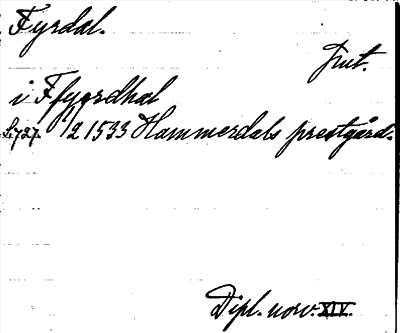 Fyrdal.
Jmt.
i Ffyordhal
S.727 1/2 1533 Hammerdals prestgård.
Dipl. norv. XIV.